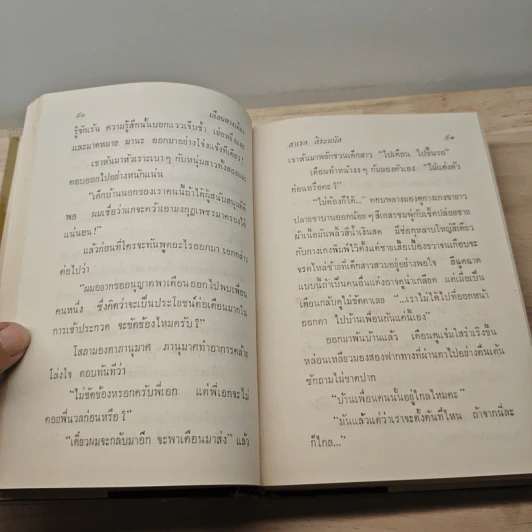 ๕๐
เดือนดวงเดียว
รู้ชักเร้น ความรู้สึกนั้นบอกแววเจ็บช้ำ
และมาดหมาย มานะ ออกมาอย่างโจ่งแจ้งทีเดียว!
เขาหันมาหัวเราะเบา ๆ กับหนุ่มสาวทั้งสอง
ตอบออกไปอย่างหนักแน่น
"เด็กบ้านนอกของเราคนนี้ถ้าได้ผู้สนับสนุนที่ดี
พอ ผมเชื่อว่าแกจะคว้าเอามงกุฎเพชรมาครองได้
แน่นอน!"
แล้วก่อนที่ใครจะทันพูดอะไรออกมา เอกก็กล่าว
ต่อไปว่า
"ผมอยากขออนุญาตพาเดือนออกไปพบเพื่อน
คนหนึ่ง ซึ่งคิดว่าจะเป็นประโยชน์ต่อเดือนมากใน
การเข้าประกวด จะขัดข้องไหมครับ?"
โสภามองตาภานุมาศ ภานุมาศทำอาการคล้าย
โล่งใจ ตอบทันทีว่า
"ไม่ขัดข้องหรอกครับพี่เอก แต่พี่เอกจะไม่
คอยพี่นวลก่อนหรือ?"
"เดี๋ยวผมจะกลับมาอีก จะพาเดือนมาส่ง" แล้ว
๕๑
เขาหันมาพยักชวนเด็กสาว "ไปเดือน ไปขึ้นรถ"
เดือนทำหน้างง ๆ ก้มมองตัวเอง "ไม่แต่งตัว
ก่อนหรือคะ?"
"ไม่ต้องก็ได้..." ตอบพลางมองดูกางเกงขายาว
ปลายขาบานออกน้อย ๆ สีเกสรชมพู่กับเช็คปล่อยชาย
ผ้าเนื้อมันพลิ้วสีน้ำเงินสด มีช่อกุหลาบใหญ่สีเดียว
กับกางเกงพิมพ์ไว้ตั้งแต่ชายเสื้อเบื้องขวาจนเกือบจะ
จรดไหล่ซ้ายที่เด็กสาวสวมอยู่อย่างพอใจ สีฉูดฉาด
แบบนี้ถ้าเป็นคนอื่นแต่งอาจดูน่าเกลียด แต่เมื่อเป็น
เดือนกลับดูไม่ขัดตาเลย "...เราไม่ได้ไปที่ออกหน้า
ออกตา ไปบ้านเพื่อนกันแค่นี้เอง"
ออกมาพ้นบ้านแล้ว เดือนดูแจ่มใสร่าเริงขึ้น
หล่อนเหลียวมองสองฟากทางที่ผ่านตาไปอย่างตื่นเต้น
ซักถามไม่ขาดปาก
"บ้านเพื่อนคนนั้นอยู่ไกลไหมคะ?"
"มันแล้วแต่ว่าเราจะตั้งต้นที่ไหน ถ้าจากนี่ละ
ก็ไกล..."